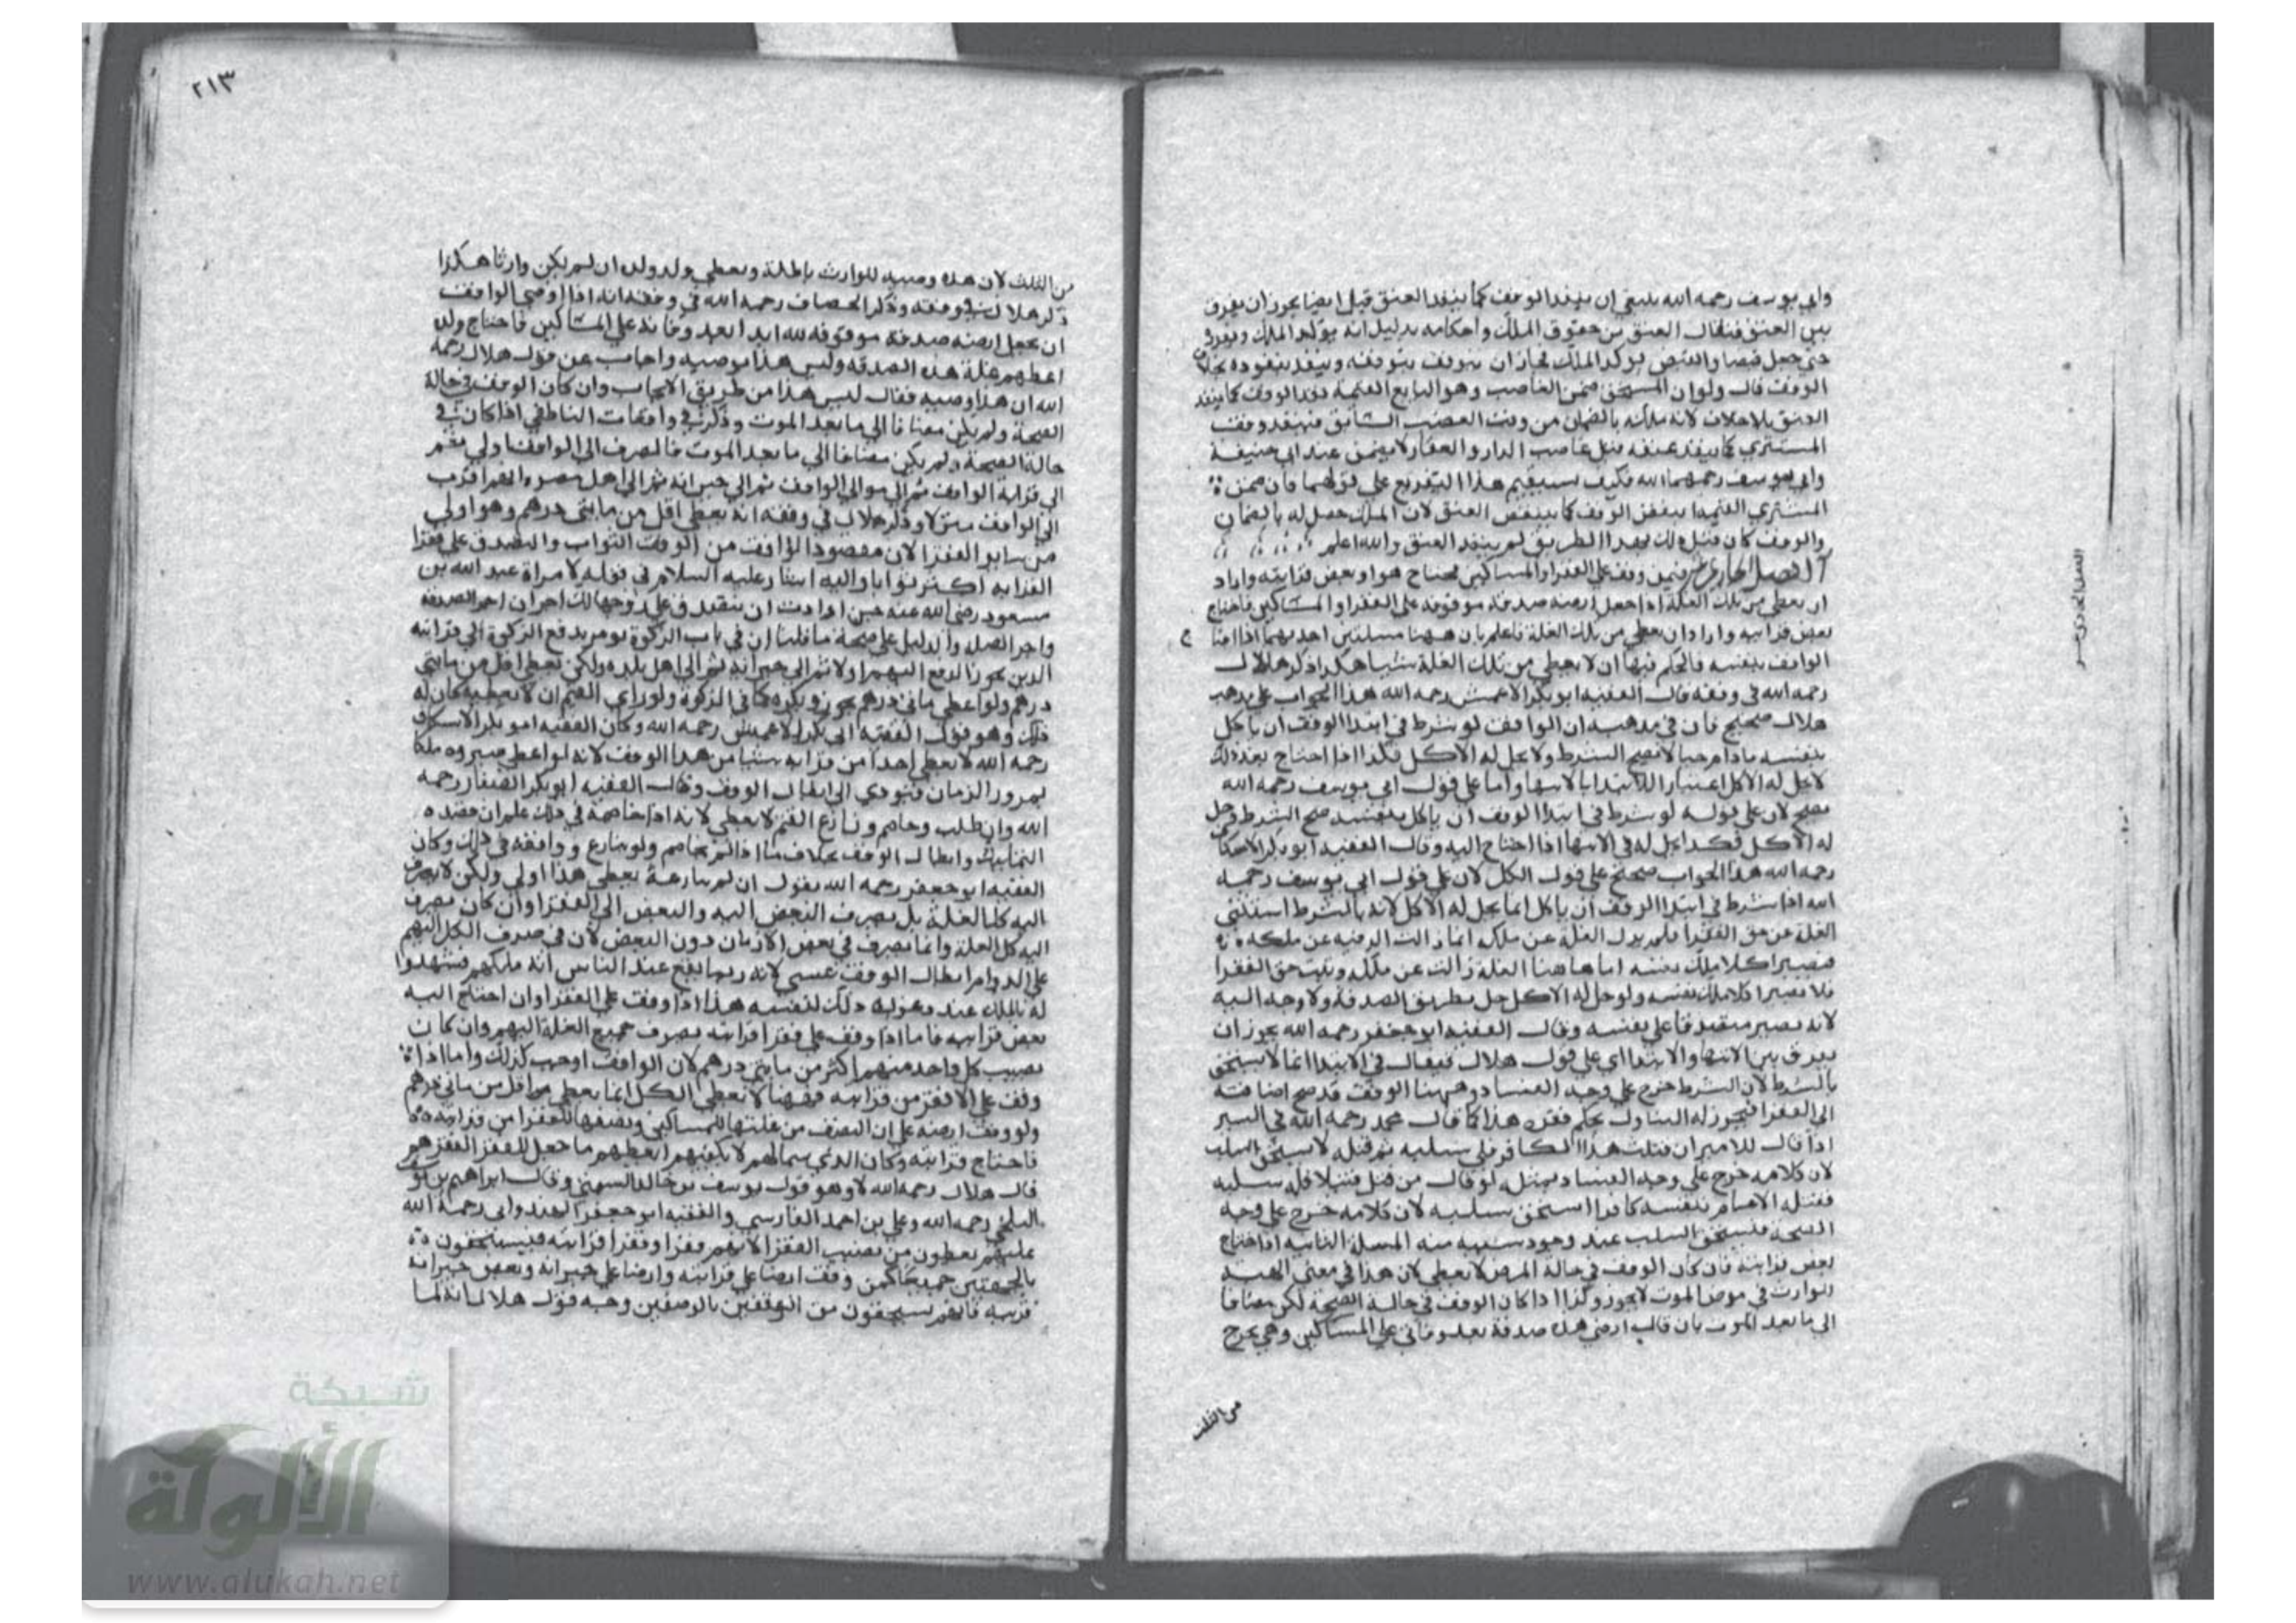 وابي يوسف رحمه الله ينبغي ان ينفد الوقف كما ينفد العتق قيل ايضا يجوز ان يفرق
بين العتق فيقال العتق من حقوق الملك واحكامه بدليل انه يوكد الملك ويقرره
حتى جعل قبضا والقبض يوكد الملك فجاز ان يتوقف بتوقفه وينفد بنفوده بخلاف
الوقف قال ولو ان المستحق ضمن الغاصب وهو البايع القيمة نفد الوقف كما ينفد
العتق بلا خلاف لانه ملكه بالضمان من وقت الغصب السابق فينفد وقف
المشتري كما ينفد عتقه قيل غاصب الدار والعقار لا يضمن عند ابي حنيفة
وابي يوسف رحمهما الله فكيف يستقيم هذا التفريع على قولهما فان ضمن
المشتري القيمة ينقض الوقف كما ينتقض العتق لان الملك حصل له بالضمان
والوقف كان قبل ذلك وبهذا الطريق لم ينفد العتق والله اعلم
الفصل الحادي عشر فيمن وقف على الفقرا والمساكين فيحتاج هو او بعض قرابته واراد
ان يعطي من تلك الغلة اذا جعل ارضه صدقة موقوفة على الفقرا والمساكين فاحتاج
بعض قرابته وارادان يعطي من تلك الغلة فاعلم بان ههنا مسئلتين احديهما اذا احتاج
الواقف بنفسه فالحكم فيها ان لا يعطي من تلك الغلة شيا هكذا ذكر هلال
رحمه الله في وقفه قال الفقيه ابو بكر الاعمش رحمه الله هذا الجواب على مذهب
هلال صحيح فان في مذهبه ان الواقف لو شرط في ابتدا الوقف ان ياكل
بنفسه مادام حيا لا يصح الشرط ولا يحل له الاكل فكذا اذا احتاج بعد ذلك
لا يحل له الاكل اعتبارا للابتدا بالانتها واما على قول ابي يوسف رحمه الله
يصح لان على قوله لو شرط في ابتدا الوقف ان ياكل بنفسه صح الشرط وحل
له الاكل فكذا يحل له في الانتها اذا احتاج اليه وقال الفقيه ابو بكر الاسكاف
رحمه الله هذا الجواب صحيح على قول الكل لان على قول ابي يوسف رحمه
الله اذا شرط في ابتدا الوقف ان ياكل انما يحل له الاكل لانه بالشرط استثنى
الغلة عن حق الفقرا فلم يزل الغلة عن ملكه انما زالت الرقبة عن ملكه
فيصير اكلا ملك نفسه اما هاهنا الغلة زالت عن ملكه وثبت حق الفقرا
فلا يصير اكلا ملك نفسه ولو حل له الاكل حل بطريق الصدقة ولا وجه اليه
لانه يصير متصدقا على نفسه وقال الفقيه ابو جعفر رحمه الله يجوز ان
يفرق بين الانتها والابتدا اي على قول هلال فيقال في الابتدا انما لا يستحق
بالشرط لان الشرط خرج على وجه الفساد وههنا الوقف قد صح اضافته
الى الفقرا فيجوز له التناول بحكم فقره هذا كما قال محمد رحمه الله في السير
اذا قال للامير ان قتلت هذا الكافر فلي سلبه ثم قتله لا يستحق السلب
لان كلامه خرج على وجه الفساد بمثله لو قال من قتل قتيلا فله سلبه
فقتله الامام بنفسه كافرا استحق سلبه لان كلامه خرج على وجه
الصحة فيستحق السلب عند وجود سببه منه المسلة الثانية اذا احتاج
بعض قرابته فان كان الوقف في حالة المرض لا يعطي لان هذا في معنى الهبة
للوارث في مرض الموت لا يجوز وكذا اذا كان الوقف في حالة الصحة لكن مضافا
الى ما بعد الموت بان قال ارضي هذه صدقة بعد وفاتي على المساكين وهي يخرج
من الثلث
السل الحادي عشر
٢١٣
من الثلث لان هذه وصيه للوارث باطلة ويعطي ولد ولده ان لم يكن وارثا هكذا
ذكر هلال في وقفه وذكر الخصاف رحمه الله في وقفه انه اذا اوصى الواقف
ان يجعل ارضه صدقة موقوفه لله ابدا بعد وفاته على المساكين فاحتاج ولده
اعطيهم غلة هذه الصدقه وليس هذا بوصيه واجاب عن قول هلال رحمه
الله ان هذا وصيه فقال ليس هذا من طريق الايجاب وان كان الوقف في حالة
الصحة ولم يكن مضافا الى ما بعد الموت وذكر في واقعات الناطفي اذا كان في
حالة الصحة ولم يكن مضافا الى ما بعد الموت فالصرف الى الواقف
الى قرابة الواقف ثم الى موالي الواقف ثم الى جيرانه ثم الى اهل مصره اقرب
الى الواقف منزلا وذكر هلال في وقفه انه يعطي اقل من مايتي درهم وهو اولى
من ساير الفقرا لان مقصود الواقف من الوقف الثواب والتصدق على فقرا
القرابه اكثر ثوابا واليه اشار عليه السلام في قوله لامراة عبد الله بن
مسعود رضي الله عنه حين ارادت ان تتصدق على زوجها لك اجران اجر الصدقه
واجر الصله والدليل على صحة ما قلنا ان في باب الزكوة يومر بدفع الزكوة الى قرابته
الذين يجوز الدفع اليهم اولا ثم الى جيرانه ثم الى اهل بلده ولكن يعطي اقل من مايتي
درهم ولو اعطى مايتي درهم يجوز ويكره كما في الزكوة ولو راي القيم ان لا يعطيه كان له
ذلك وهو قول الفقيه ابي بكر الاعمش رحمه الله وكان الفقيه ابو بكر الاسكاف
رحمه الله لا يعطي احدا من قرابته شيا من هذا الوقف لانه لو اعطى صيروه ملكا
بمرور الزمان فيودي الى ابطال الوقف وقال الفقيه ابو بكر الصفار رحمه
الله وان طلب وخاصم ونازع القيم لا يعطي لانه اذا خاصمه في ذلك علم ان قصده
التمليك وابطال الوقف بخلاف ما اذا لم يخاصم ولو ينازع ووافقه في ذلك وكان
الفقيه ابو جعفر رحمه الله يقول ان لم ينازعه يعطي هذا اولى ولكن لا يصرف
اليه كل الغلة بل يصرف البعض اليه والبعض الى الفقرا وان كان يصرف
اليه كل الغلة وانما يصرف في بعض الازمان دون البعض لان في صرف الكل اليهم
على الدوام ابطال الوقف عسى لانه ربما يقع عند الناس انه ملكهم فيشهدوا
له بالملك عند دعواه ذلك لنفسه هذا اذا وقف على الفقرا وان احتاج اليه
بعض قرابته فاما اذا وقف على فقرا قرابته يصرف جميع الغلة اليهم وان كان
نصيب كل واحد منهم اكثر من مايتي درهم لان الواقف اوجب كذلك واما اذا
وقف على الافقر من قرابته فههنا لا يعطي الكل انما يعطي اقل من مايتي درهم
ولو وقف ارضه على ان النصف من غلتها للمساكين ونصفها للفقرا من قرابته
فاحتاج قرابته وكان الذي سمالهم لا يكفيهم ايعطيهم ما جعل للفقرا
قال هلال رحمه الله لا وهو قول يوسف بن خالد السمتي وقال ابراهيم بن يوسف
البلخي رحمه الله وعلي بن احمد الفارسي والفقيه ابو جعفر الهندواني رحمة الله
عليهم يعطون من نصيب الفقرا لانهم فقرا وفقرا قرابته فيستحقون
بالجهتين جميعا كمن وقف ارضا على قرابته وارضا على جيرانه وبعض جيرانه
قرابته فانهم يستحقون من الوقفين بالوصفين وجه قول هلال انه لما
شبكة
الألوكة
www.alukah.net